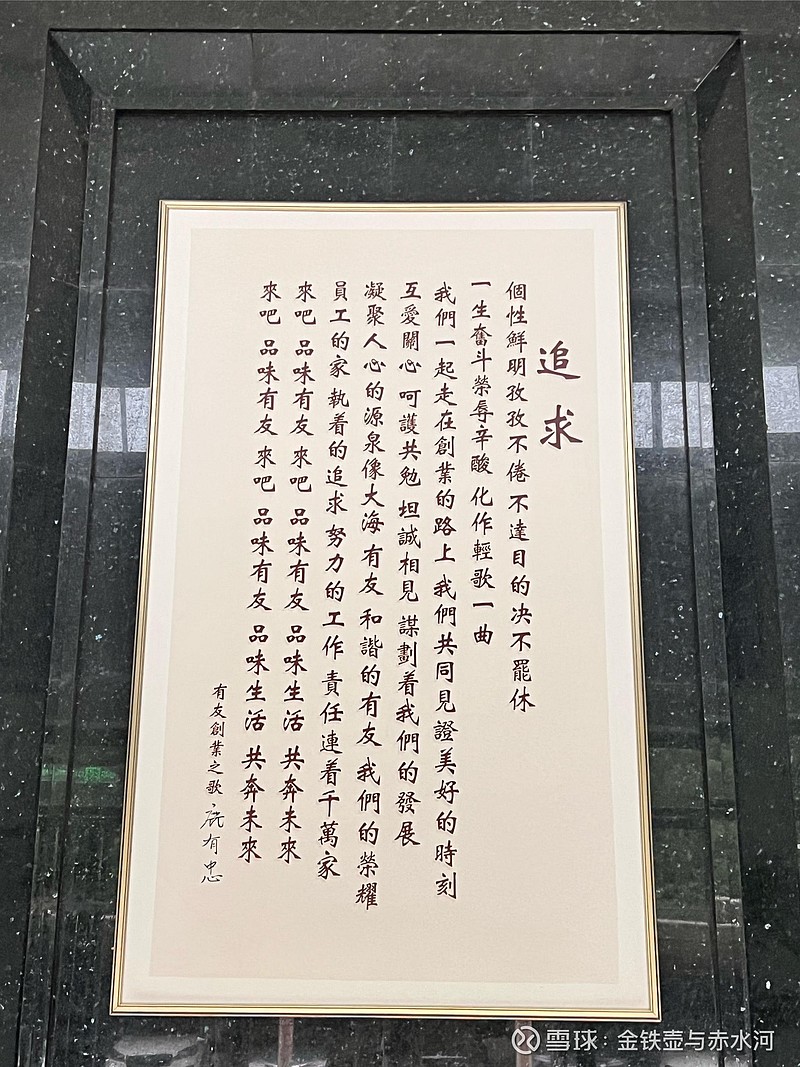 追求
個性鮮明孜孜不倦 不達目的決不罷休
一生奮斗榮辱辛酸 化作輕歌一曲
我們一起走在創業的路上 我們共同見證美好的時刻
互愛關心 呵護共勉 坦誠相見 謀劃着我們的發展
凝聚人心的源泉像大海 有友 和諧的有友 我們的榮耀
員工的家 執着的追求 努力的工作 責任連着千萬家
來吧 品味有友 來吧 品味有友 品味生活 共奔未來
來吧 品味有友 來吧 品味有友 品味生活 共奔未來
有友創業之歌·鹿有忠
雪球：金铁壶与赤水河